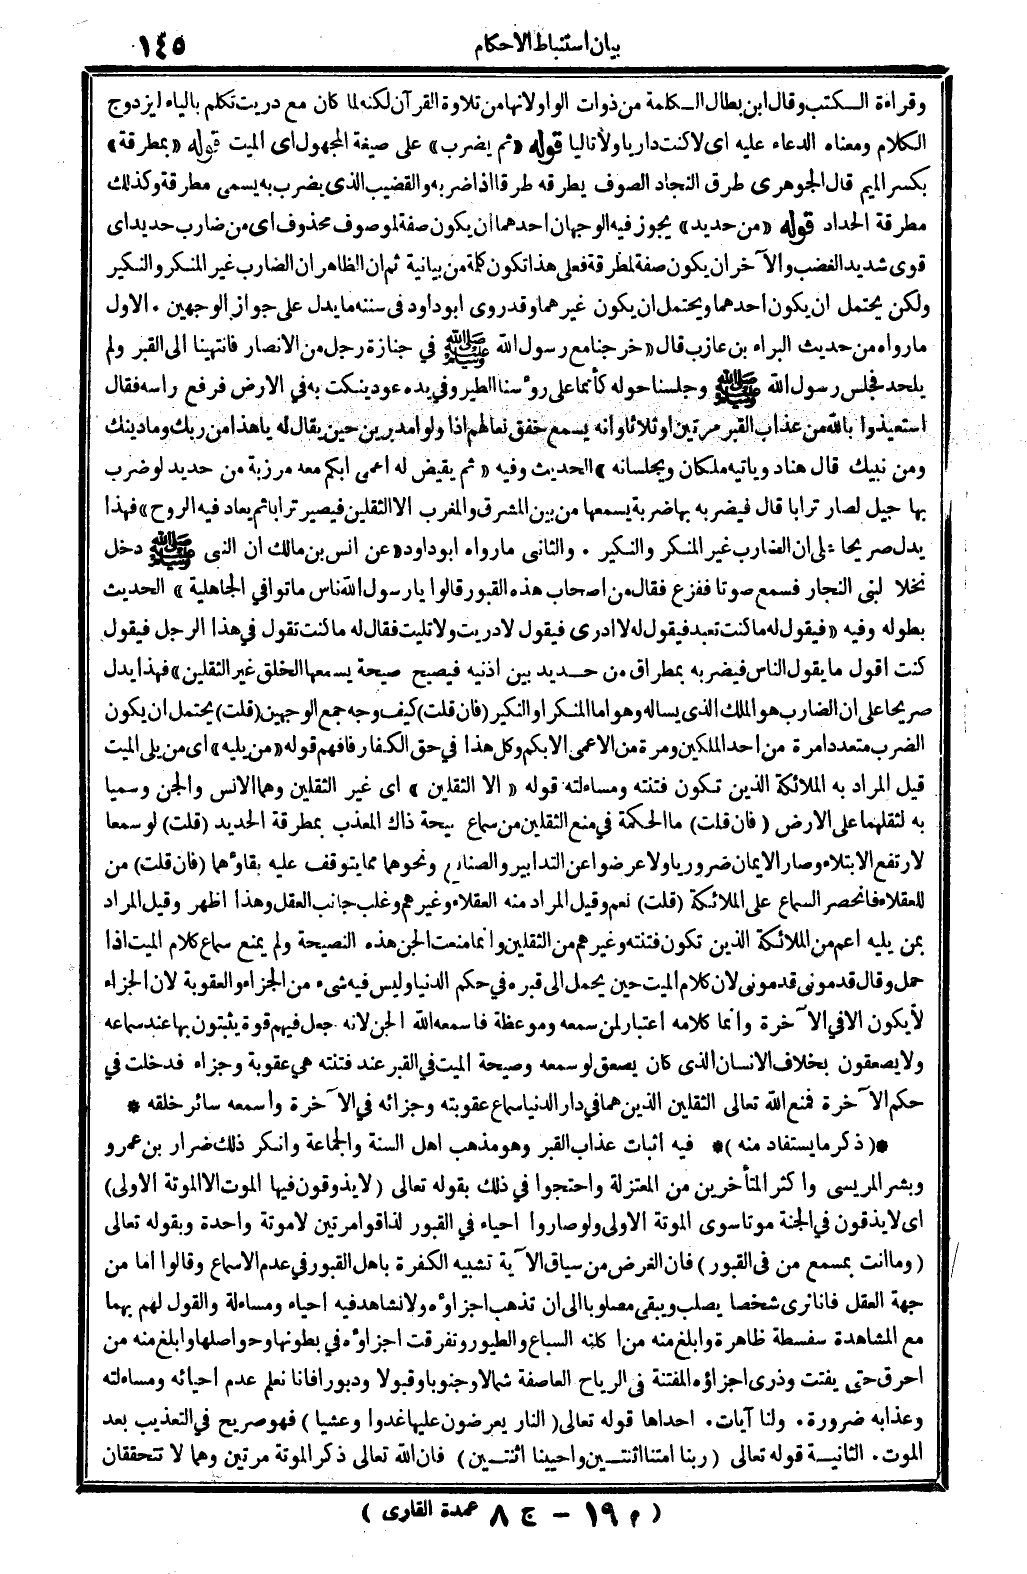 بيان استنباط الاحكام ١٤٥
وقراءة الكتب وقال ابن بطال الكلمة من ذوات الواو لانها من تلاوة القرآن لكنه لما كان مع دريت تكلم بالياء ليزدوج
الكلام ومعناه الدعاء عليه اى لا كنت داريا ولا تاليا قوله «ثم يضرب» على صيغة المجهول اى الميت قوله «بمطرقة»
بكسر الميم قال الجوهرى طرق النجاد الصوف يطرقه طرقا اذا ضربه والقضيب الذى يضرب به يسمى مطرقة وكذلك
مطرقة الحداد قوله «من حديد» يجوز فيه الوجهان احدهما ان يكون صفة لموصوف محذوف اى من ضارب حديد اى
قوى شديد الغضب والآخر ان يكون صفة لمطرقة فعلى هذا تكون كلمة من بيانية ثم ان الظاهر ان الضارب غير المنكر والنكير
ولكن يحتمل ان يكون احدهما ويحتمل ان يكون غيرهما وقد روى ابو داود فى سننه ما يدل على جواز الوجهين . الاول
ما رواه من حديث البراء بن عازب قال «خرجنا مع رسول الله ﷺ في جنازة رجل من الانصار فانتهينا الى القبر ولم
يلحد فجلس رسول الله ﷺ وجلسنا حوله كأنما على رؤسنا الطير وفي يده عود ينكت به في الارض فرفع راسه فقال
استعيذوا بالله من عذاب القبر مرتين او ثلاثا وانه يسمع خفق نعالهم اذا ولوا مدبرين حين يقال له يا هذا من ربك وما دينك
ومن نبيك قال هناد وياتيه ملكان ويجلسانه» الحديث وفيه «ثم يقيض له اعمى ابكم معه مرزبة من حديد لو ضرب
بها جبل لصار ترابا قال فيضربه بها ضربة يسمعها من بين المشرق والمغرب الا الثقلين فيصير ترابا ثم يعاد فيه الروح» فهذا
يدل صريحا على ان الضارب غير المنكر والنكير . والثانى ما رواه ابو داود «عن انس بن مالك ان النبى ﷺ دخل
نخلا لبنى النجار فسمع صوتا ففزع فقال من اصحاب هذه القبور قالوا يا رسول الله ناس ماتوا في الجاهلية» الحديث
بطوله وفيه «فيقول له ما كنت تعبد فيقول له لا ادرى فيقول لا دريت ولا تليت فقال له ما كنت تقول في هذا الرجل فيقول
كنت اقول ما يقول الناس فيضربه بمطراق من حديد بين اذنيه فيصيح صيحة يسمعها الخلق غير الثقلين» فهذا يدل
صريحا على ان الضارب هو الملك الذى يساله وهو اما المنكر او النكير (فان قلت) كيف وجه جمع الوجهين (قلت) يحتمل ان يكون
الضرب متعددا مرة من احد الملكين ومرة من الاعمى الابكم وكل هذا في حق الكفار فافهم قوله «من يليه» اى من يلى الميت
قيل المراد به الملائكة الذين تكون فتنته ومساءلته قوله «الا الثقلين» اى غير الثقلين وهما الانس والجن وسميا
به لثقلهما على الارض (فان قلت) ما الحكمة في منع الثقلين من سماع صيحة ذاك المعذب بمطرقة الحديد (قلت) لو سمعا
لارتفع الابتلاء وصار الايمان ضروريا ولاعرضوا عن التدابير والصنايع ونحوهما مما يتوقف عليه بقاؤهما (فان قلت) من
للعقلاء فانحصر السماع على الملائكة (قلت) نعم وقيل المراد منه العقلاء وغيرهم وغلب جانب العقل وهذا اظهر وقيل المراد
بمن يليه اعم من الملائكة الذين تكون فتنته وغيرهم من الثقلين وانما منعت الجن هذه الصيحة ولم يمنع سماع كلام الميت اذا
حمل وقال قدمونى قدمونى لان كلام الميت حين يحمل الى قبره في حكم الدنيا وليس فيه شىء من الجزاء والعقوبة لان الجزاء
لا يكون الا في الآخرة وانما كلامه اعتبار لمن سمعه وموعظة فاسمعه الله الجن لانه جعل فيهم قوة يثبتون بها عند سماعه
ولا يصعقون بخلاف الانسان الذى كان يصعق لو سمعه وصيحة الميت في القبر عند فتنته هي عقوبة وجزاء فدخلت في
حكم الآخرة فمنع الله تعالى الثقلين الذين هما في دار الدنيا سماع عقوبته وجزائه في الآخرة واسمعه سائر خلقه *
*(ذكر ما يستفاد منه)* فيه اثبات عذاب القبر وهو مذهب اهل السنة والجماعة وانكر ذلك ضرار بن عمرو
وبشر المريسى واكثر المتأخرين من المعتزلة واحتجوا في ذلك بقوله تعالى (لا يذوقون فيها الموت الا الموتة الاولى)
اى لا يذقون في الجنة موتا سوى الموتة الاولى ولو صاروا احياء في القبور لذاقوا مرتين لا موتة واحدة وبقوله تعالى
(وما انت بمسمع من فى القبور) فان الغرض من سياق الآية تشبيه الكفرة باهل القبور في عدم الاسماع وقالوا اما من
جهة العقل فانا نرى شخصا يصلب ويبقى مصلوبا الى ان تذهب اجزاؤه ولا نشاهد فيه احياء ومساءلة والقول لهم بهما
مع المشاهدة سفسطة ظاهرة وابلغ منه من اكلته السباع والطيور وتفرقت اجزاؤه في بطونها وحواصلها وابلغ منه من
احرق حتى يفتت وذرى اجزاؤه المفتتة فى الرياح العاصفة شمالا وجنوبا وقبولا ودبورا فانا نعلم عدم احيائه ومساءلته
وعذابه ضرورة . ولنا آيات . احداها قوله تعالى (النار يعرضون عليها غدوا وعشيا) فهو صريح في التعذيب بعد
الموت . الثانية قوله تعالى (ربنا امتنا اثنتين واحيينا اثنتين) فان الله تعالى ذكر الموتة مرتين وهما لا تتحققان
(م ١٩ — ج ٨ عمدة القارى)